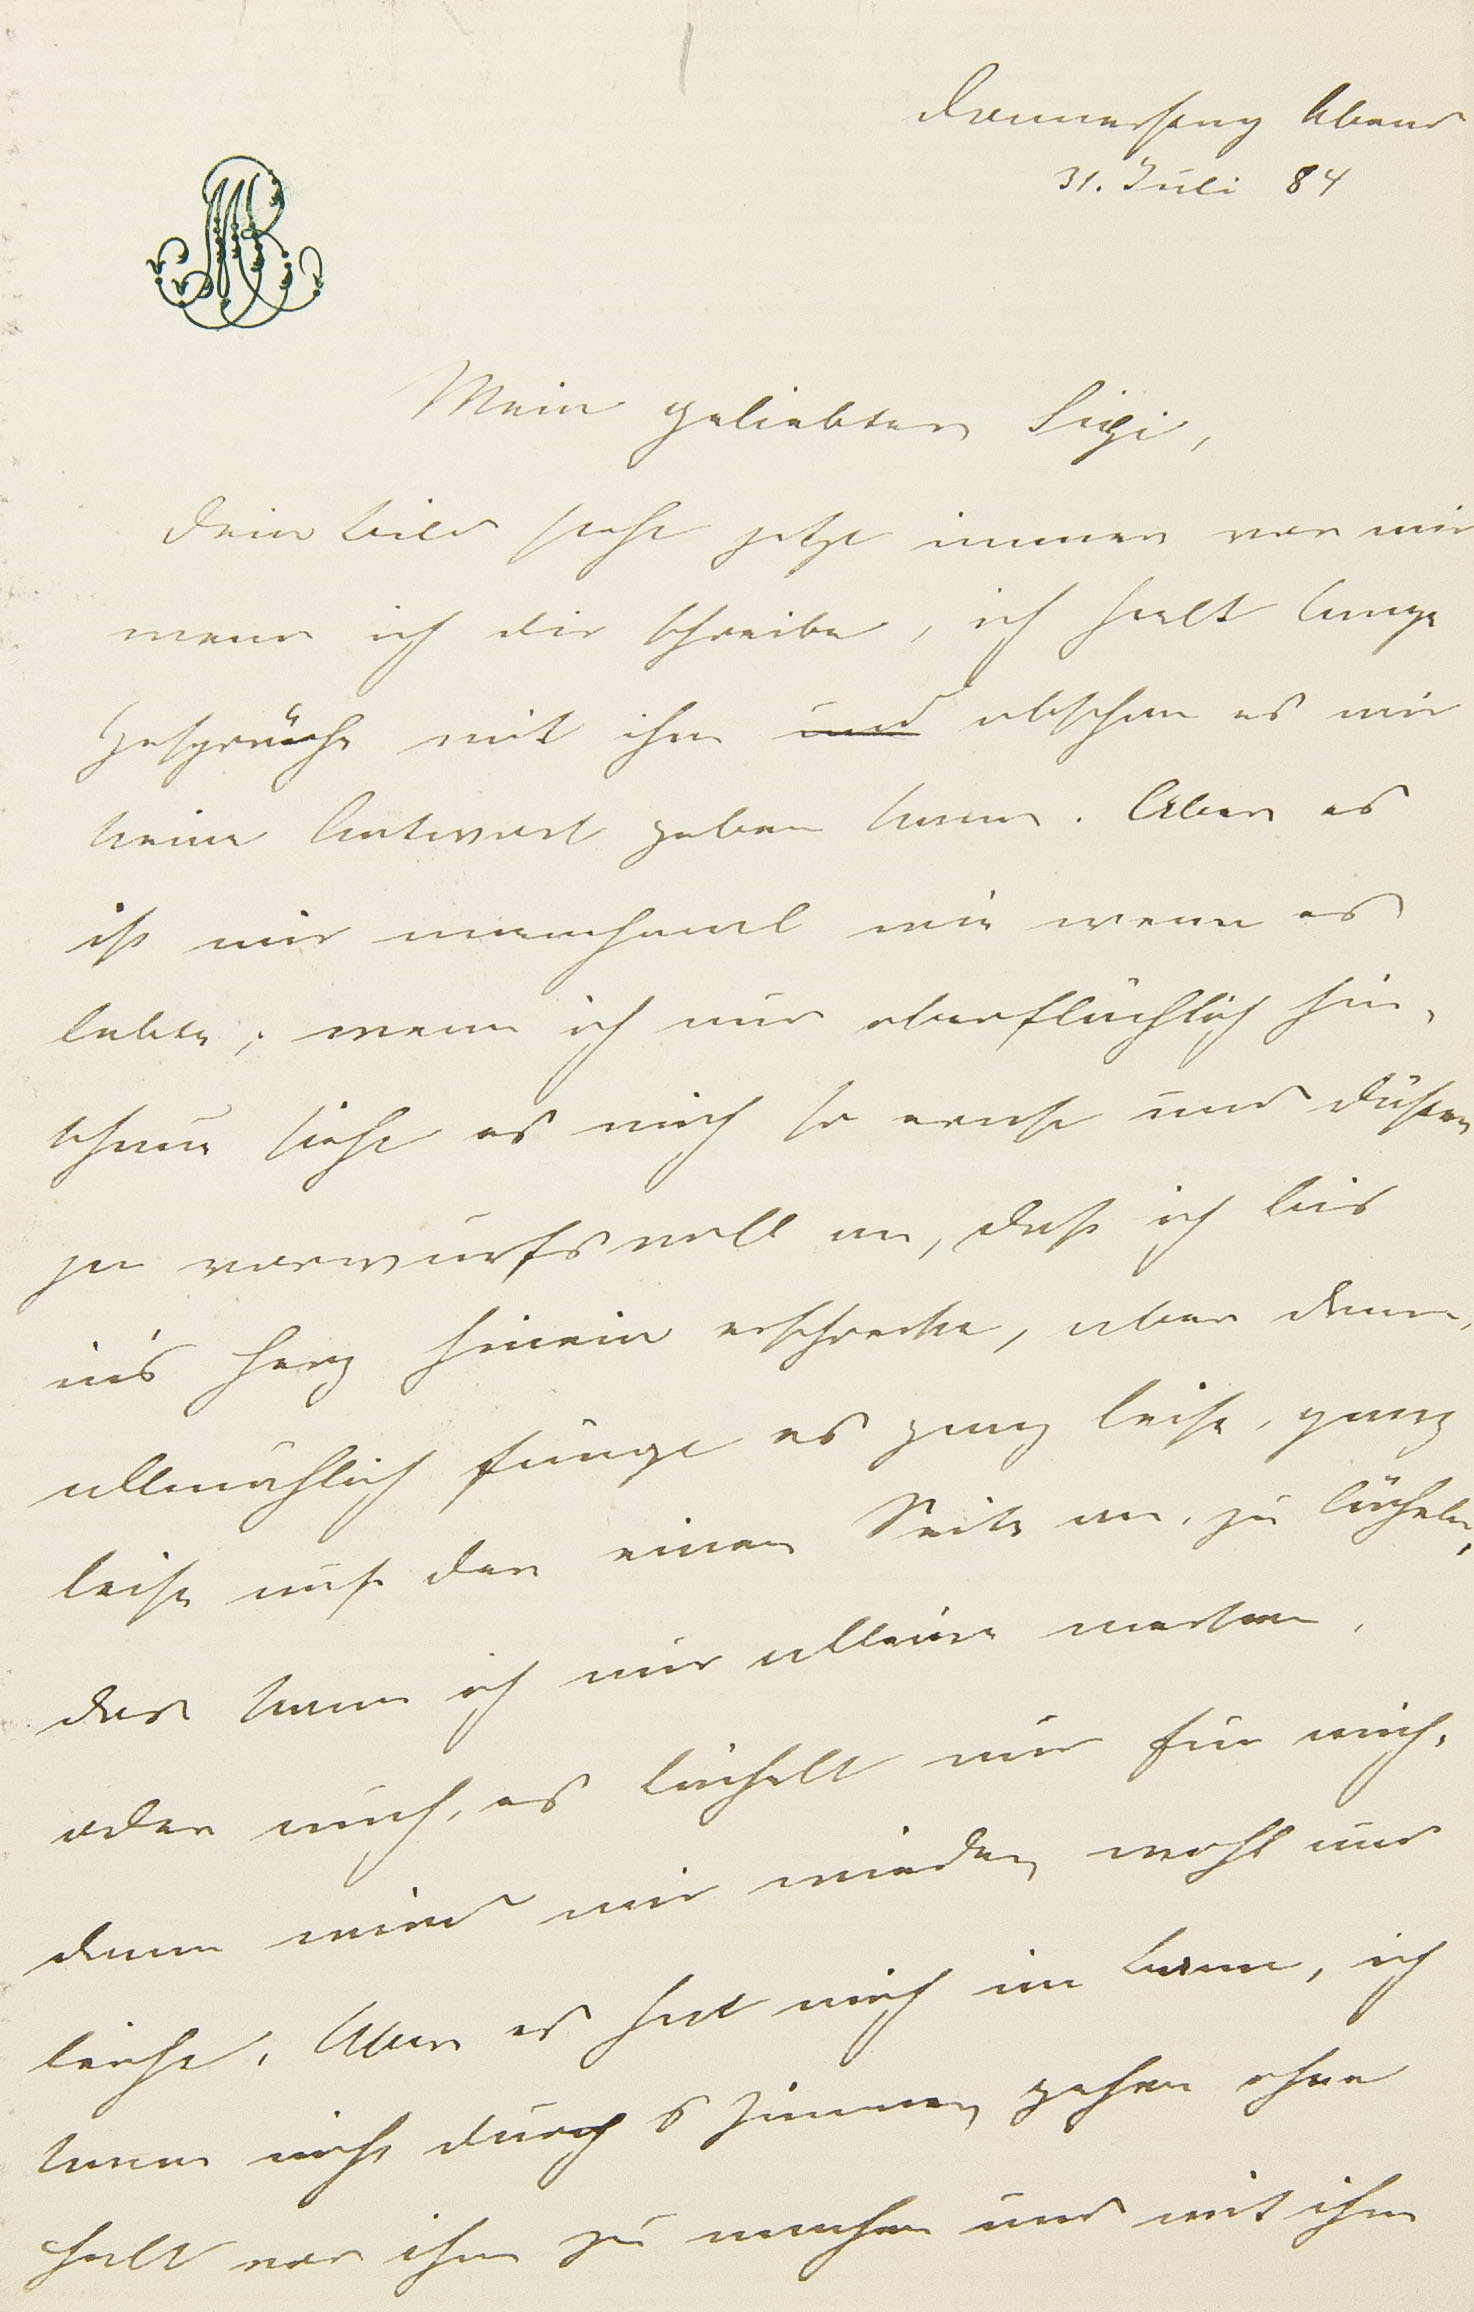 Donnerstag Abend
31. Juli 84
MB
Mein geliebter Sigi,
Dein Bild steht jetzt immer vor mir
wenn ich Dir schreibe, ich halt lange
Gespräche mit ihm und obschon es mir
keine Antwort geben kann. Aber es
ist mir manchmal wie wenn es
lebte, wenn ich nur oberflächlich hin-
schaue sieht es mich so ernst und düster
ja vorwurfsvoll an, daß ich bis
in's Herz hinein erschrecke, aber dann,
allmählich fängt es ganz leise, ganz
leise auf der einen Seite an, zu lächeln,
das kann ich nur alleine merken,
oder auch, es lächelt nur für mich,
dann wird mir wieder wohl und
leicht. Aber es hat mich im Bann, ich
kann nicht durch's Zimmer gehen ohne
Halt vor ihm zu machen und mit ihm